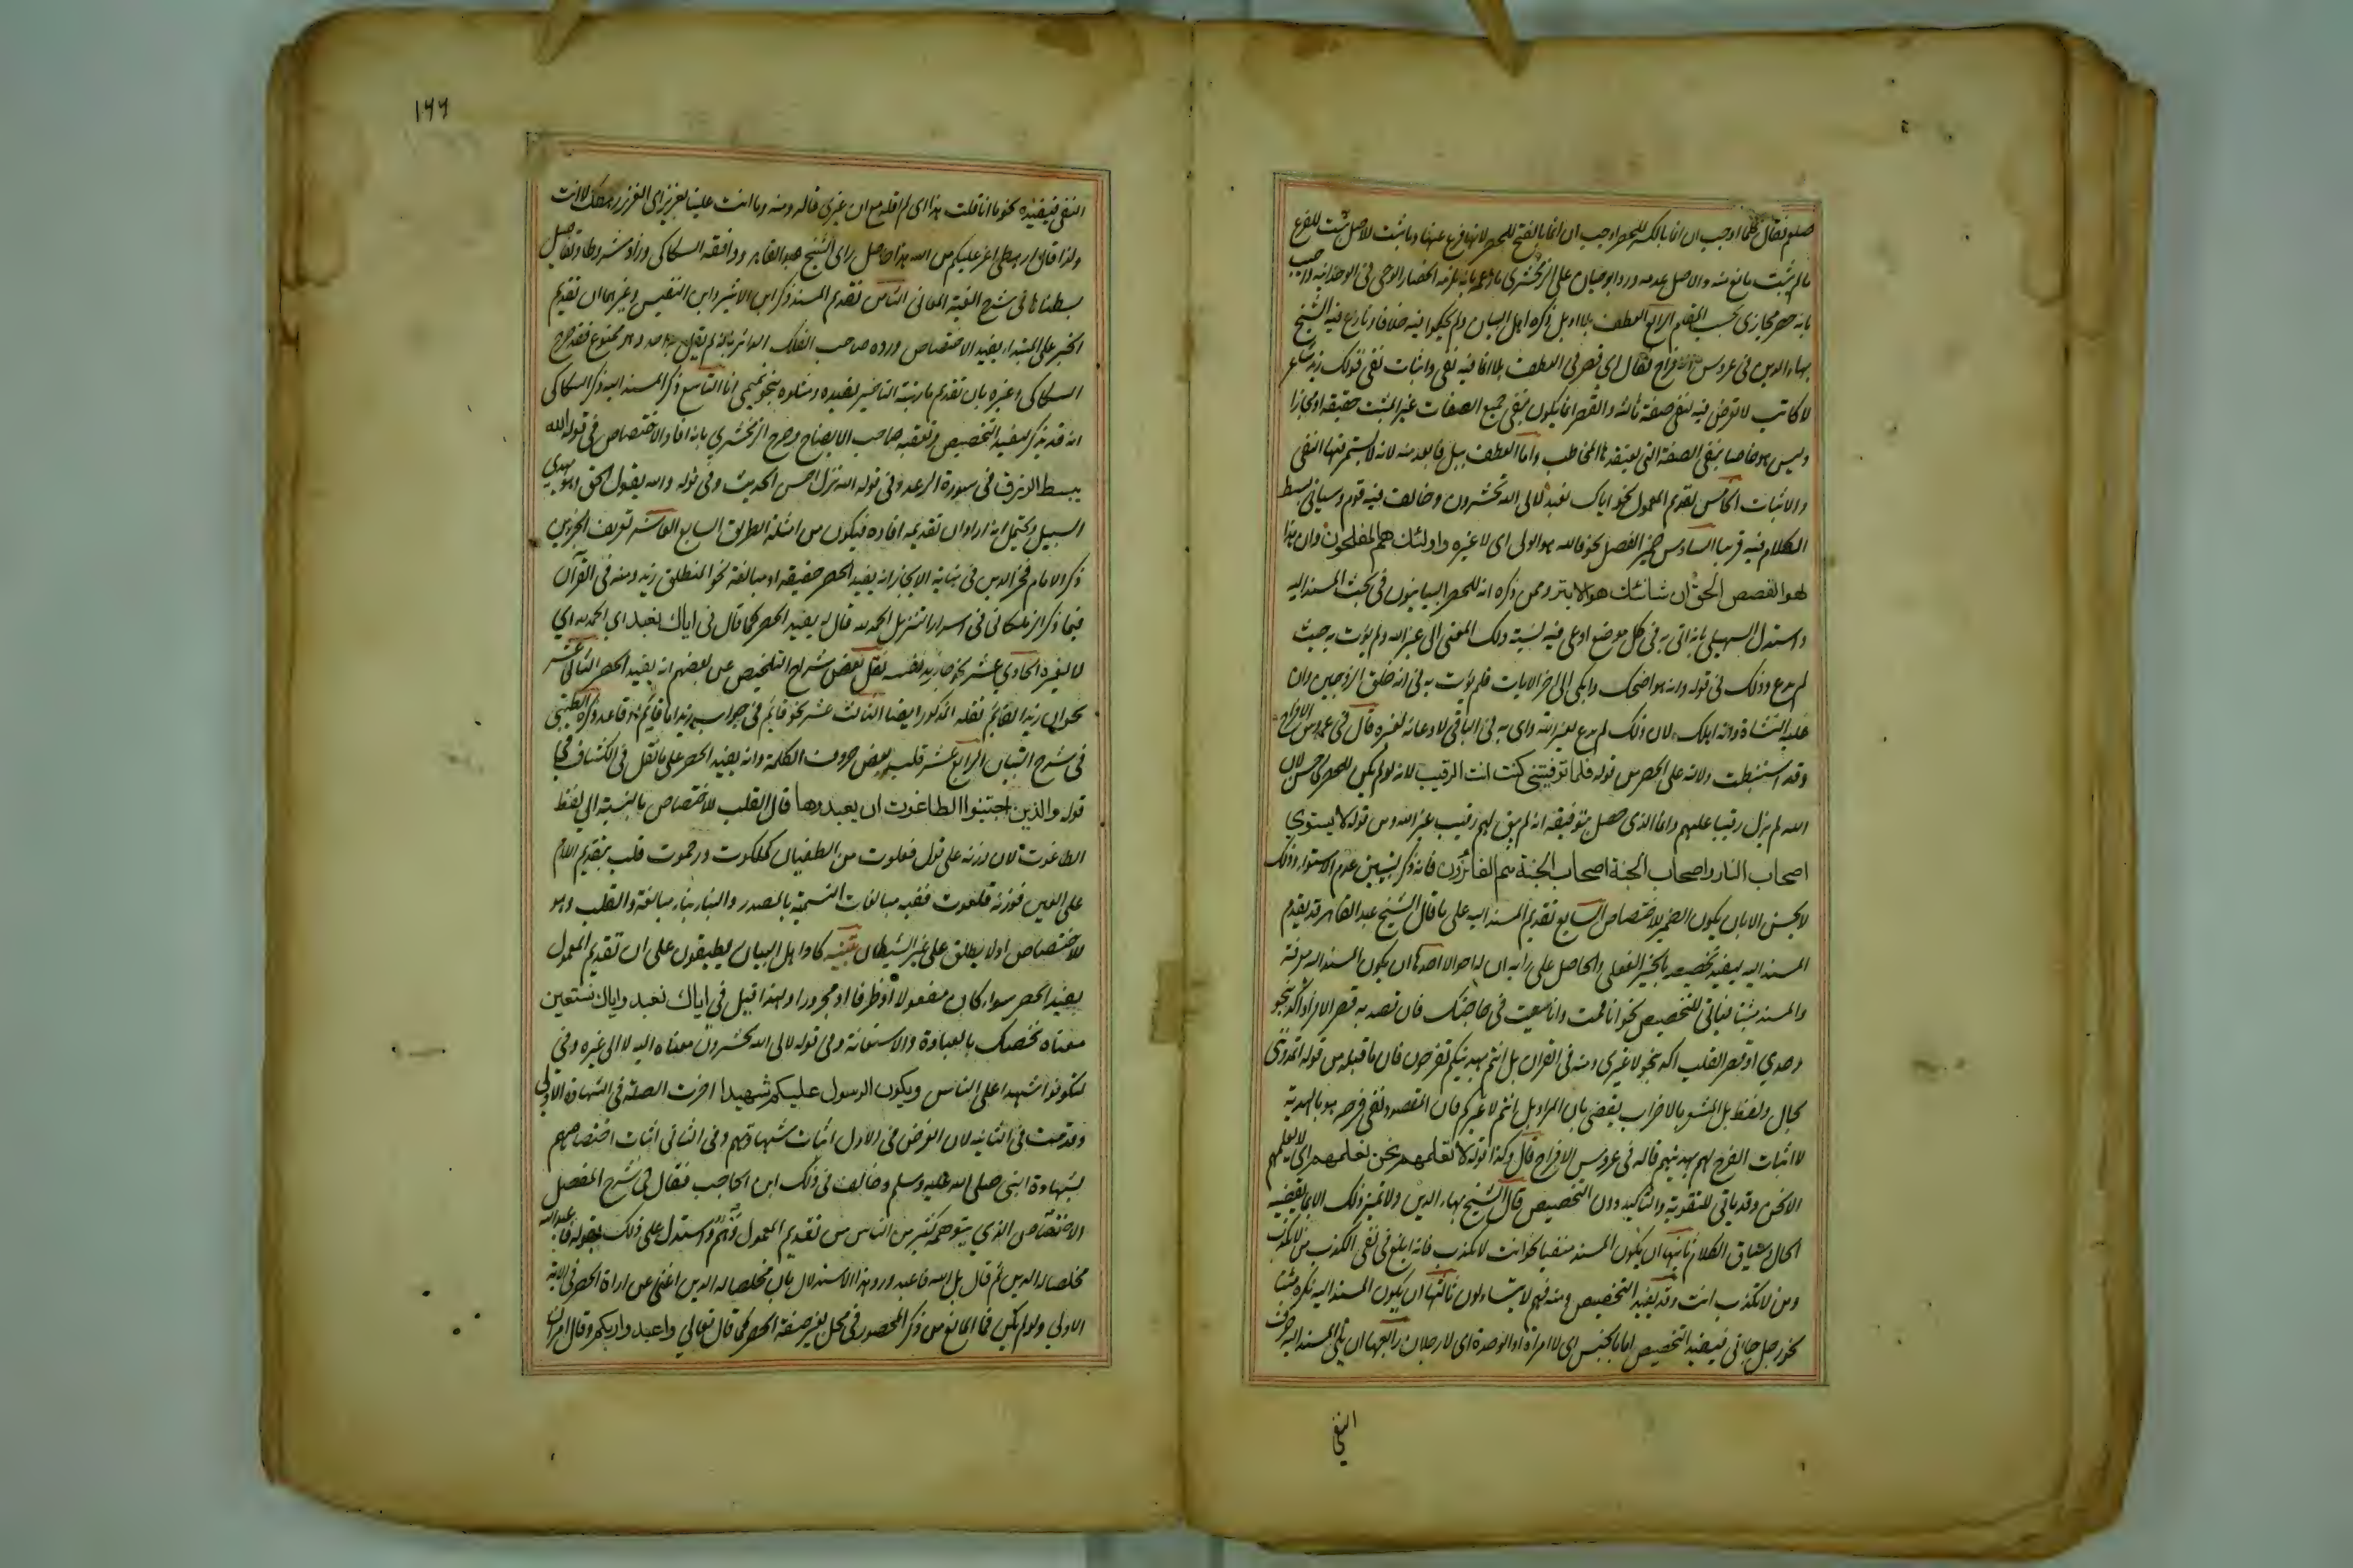 صلهم فقال كلما اوجب ان انما بالكسر للحصر اوجب ان انما بالفتح للحصر لانها فرع عنها وما ثبت للاصل ثبت للفرع
ما لم يثبت مانع منه والاصل عدمه ورد ابو حيان على الزمخشري ما زعمه بانه يلزمه انحصار الوحي في الوحدانية واجيب
بانه حصر مجازي بحسب المقام الرابع العطف بلا او بل ذكره اهل البيان ولم يحكوا فيه خلافا ونازع فيه الشيخ
بهاء الدين في عروس الافراح فقال اي قصر في العطف بلا انما فيه نفي واثبات نفي قولك زيد شاعر
لا كاتب لا تعرض فيه لنفي صفة ثالثة والقصر انما يكون بنفي جميع الصفات غير المثبت حقيقة او مجازا
وليس هو خاصا بنفي الصفة التي يعتقدها المخاطب واما العطف ببل فابعد منه لانه لا يستمر فيها النفي
والاثبات الخامس تقديم المعمول نحو اياك نعبد لالى الله تحشرون وخالف فيه قوم وسياتي بسط
الكلام فيه قريبا السادس ضمير الفصل نحو فالله هو الولي اي لا غيره واولئك هم المفلحون وان هذا
لهو القصص الحق ان شانئك هو الابتر وممن ذكره انه للحصر البيانيون في بحث المسند اليه
واستدل السهيلي بانه اتى به في كل موضع ادعي فيه نسبة ذلك المعنى الى غير الله ولم يؤت به حيث
لم يدع وذلك في قوله وانه هو اضحك وابكى الى اخر الايات فلم يؤت به في انه خلق الزوجين وان
عليه النشاة وانه اهلك لان ذلك لم يدع لغير الله واتى به في الباقي لادعائه لغيره قال في عروس الافراح
وقد استنبطت دلالته على الحصر من قوله فلما توفيتني كنت انت الرقيب لانه لو لم يكن للحصر لما حسن لان
الله لم يزل رقيبا عليهم وانما الذي حصل بتوفيته انه لم يبق لهم رقيب غير الله ومن قوله لا يستوي
اصحاب النار واصحاب الجنة اصحاب الجنة هم الفائزون فانه ذكر لتبيين عدم الاستواء وذلك
لا يحسن الا بان يكون الضمير للاختصاص السابع تقديم المسند اليه على ما قال الشيخ عبد القاهر قد يقدم
المسند اليه ليفيد تخصيصه بالخبر الفعلي والحاصل على رايه ان له احوالا احدها ان يكون المسند اليه معرفة
والمسند مثبتا فياتي للتخصيص نحو انا قمت وانا سعيت في حاجتك فان قصد به قصر الافراد اكد بنحو
وحدي او قصر القلب اكد بنحو لا غيري ومنه في القران بل انتم بهديتكم تفرحون فان ما قبله من قوله اتمدونني
بمال ولفظ بل المشعر بالاضراب يقضي بان المراد بل انتم لا غيركم فان المقصود نفي فرحه هو بالهدية
لا اثبات الفرح لهم بهديتهم قاله في عروس الافراح قال وكذا قوله لا تعلمهم نحن نعلمهم اي لا يعلمهم
الا نحن وقد ياتي للتقوية والتاكيد دون التخصيص قال الشيخ بهاء الدين ولا يتميز ذلك الا بما يقتضيه
الحال وسياق الكلام ثانيها ان يكون المسند منفيا نحو انت لا تكذب فانه ابلغ في نفي الكذب من لا تكذب
ومن لا تكذب انت وقد يفيد التخصيص ومنه فهم لا يتساءلون ثالثها ان يكون المسند اليه نكرة مثبتا
نحو رجل جاني فيفيد التخصيص اما بالجنس اي لا امراة او الوحدة اي لا رجلان رابعها ان يلي المسند اليه حرف
النفي
١٦٦
النفي فيفيده نحو ما انا قلت هذا اي لم اقله مع ان غيري قاله ومنه وما انت علينا بعزيز اي العزيز رهطك لا انت
ولذا قال ارهطي اعز عليكم من الله هذا حاصل راي الشيخ عبد القاهر ووافقه السكاكي وزاد شروطا وتفاصيل
بسطناها في شرح الفية المعاني الثامن تقديم المسند ذكر ابن الاثير وابن النفيس وغيرهما ان تقديم
الخبر على المبتدا يفيد الاختصاص ورده صاحب الفلك الدائر بانه لم يقل به احد وهو ممنوع فقد صرح
السكاكي وغيره بان تقديم ما رتبته التاخير يفيده ومثلوه بنحو تميمي انا التاسع ذكر المسند اليه ذكر السكاكي
انه قد يذكر ليفيد التخصيص وتعقبه صاحب الايضاح وصرح الزمخشري بانه افاد الاختصاص في قوله الله
يبسط الرزق في سورة الرعد وفي قوله الله نزل احسن الحديث وفي قوله والله يقول الحق وهو يهدي
السبيل ويحتمل انه اراد ان تقديمه افاده فيكون من امثلة الطريق السابع العاشر تعريف الجزئين
ذكر الامام فخر الدين في نهاية الايجاز انه يفيد الحصر حقيقة او مبالغة نحو المنطلق زيد ومنه في القران
فيما ذكر الزملكاني في اسرار التنزيل الحمد لله قال انه يفيد الحصر كما قال في اياك نعبد اي الحمد لله اي
لا لغيره الحادي عشر نحو جا زيد نفسه نقل بعض شراح التلخيص عن بعضهم انه يفيد الحصر الثاني عشر
نحو ان زيدا لقائم نقله المذكور ايضا الثالث عشر نحو قائم في جواب زيد اما قائم او قاعد ذكره الطيبي
في شرح التبيان الرابع عشر قلب بعض حروف الكلمة وانه يفيد الحصر على ما نقل في الكشاف في
قوله والذين اجتنبوا الطاغوت ان يعبدوها قال القلب للاختصاص بالنسبة الى لفظ
الطاغوت لان وزنه على قول فعلوت من الطغيان كملكوت ورحموت قلب بتقديم اللام
على العين فوزنه فلعوت ففيه مبالغات التسمية بالمصدر والبناء بناء مبالغة والقلب وهو
للاختصاص اذ لا يطلق على غير الشيطان تنبيه كاد اهل البيان يطبقون على ان تقديم المعمول
يفيد الحصر سواء كان مفعولا او ظرفا او مجرورا ولهذا قيل في اياك نعبد واياك نستعين
معناه نخصك بالعبادة والاستعانة وفي قوله لالى الله تحشرون معناه اليه لا الى غيره وفي
لتكونوا شهداء على الناس ويكون الرسول عليكم شهيدا اخرت الصلة في الشهادة الاولى
وقدمت في الثانية لان الغرض في الاول اثبات شهادتهم وفي الثاني اثبات اختصاصهم
بشهادة النبي صلى الله عليه وسلم وخالف في ذلك ابن الحاجب فقال في شرح المفصل
الاختصاص الذي يتوهمه كثير من الناس من تقديم المعمول وهم واستدل على ذلك بقوله فاعبد الله
مخلصا له الدين ثم قال بل الله فاعبد ورد هذا الاستدلال بان مخلصا له الدين اغنى عن اداة الحصر في الاية
الاولى ولو لم يكن فما المانع من ذكر المحصور في محل بغير صيغة الحصر كما قال تعالى واعبدوا ربكم وقال امر ان